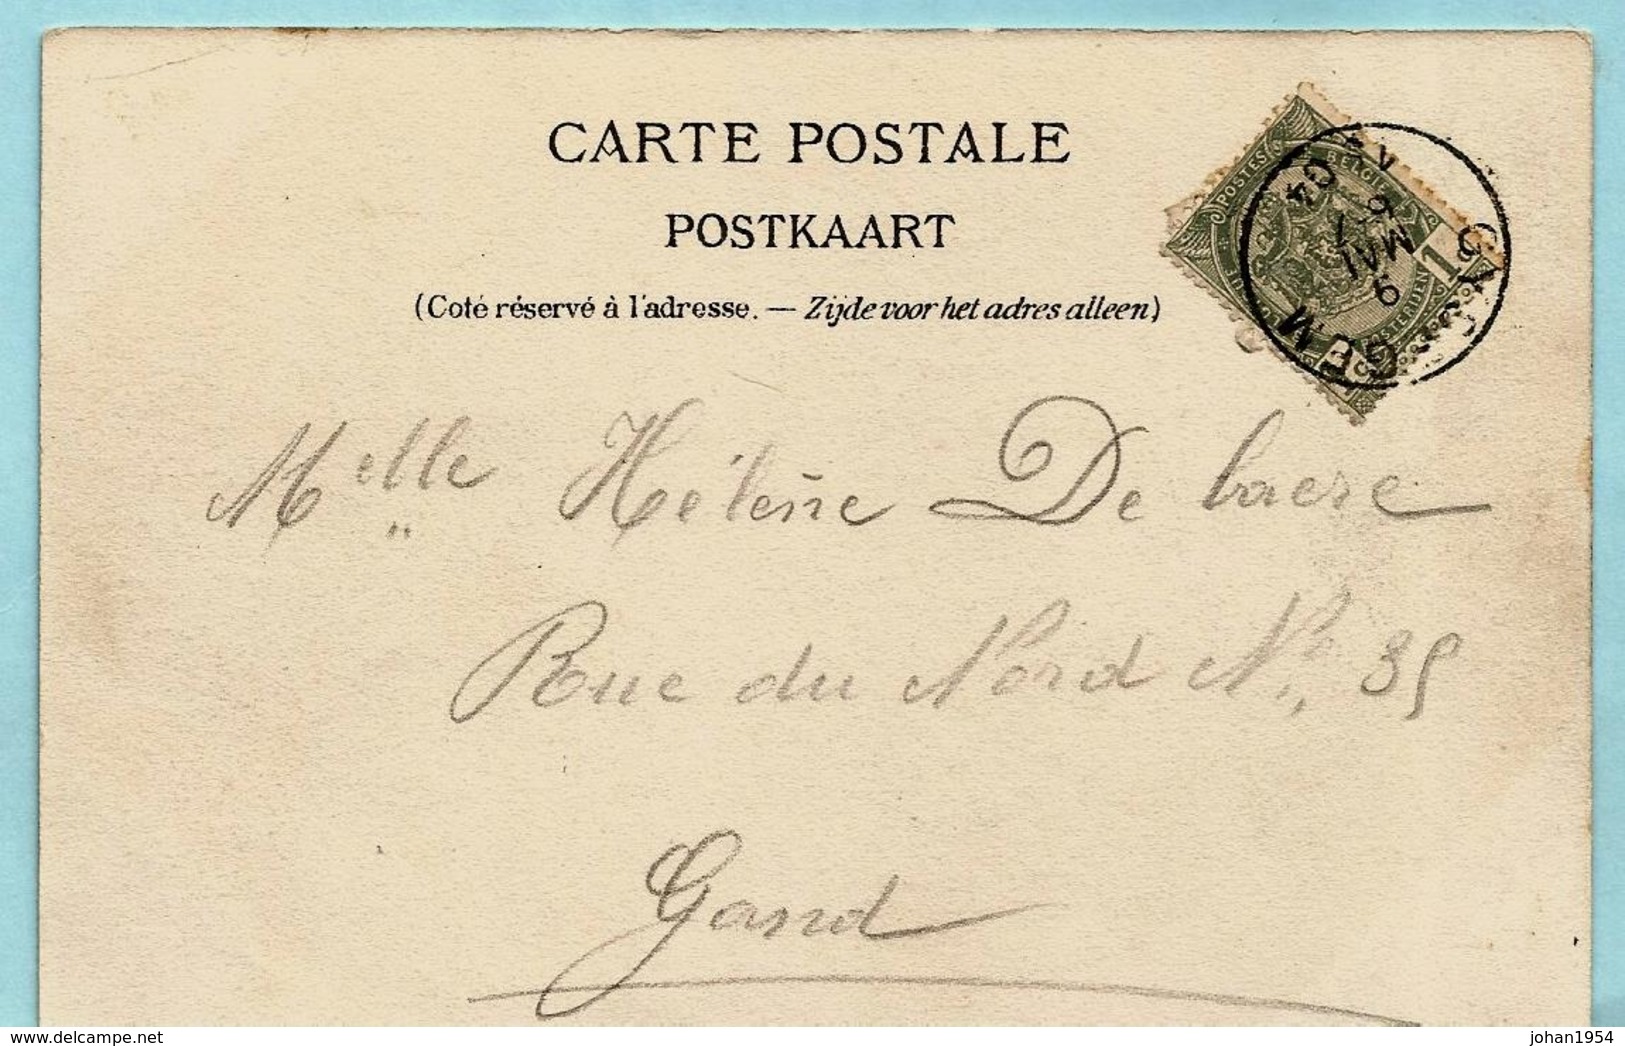 CARTE POSTALE
POSTKAART
(Coté réservé à l'adresse. — Zijde voor het adres alleen)
POSTES BELGIE
1
9
MAI
04
Melle Hélène De baere
Rue du Nord No 35
Gand
delcampe.net
johan1954